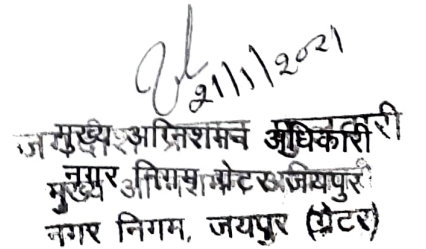 21/1/2021
मुख्य अग्निशमन अधिकारी
नगर निगम ग्रेटर जयपुर
मुख्य
नगर निगम, जयपुर (ग्रेटर)